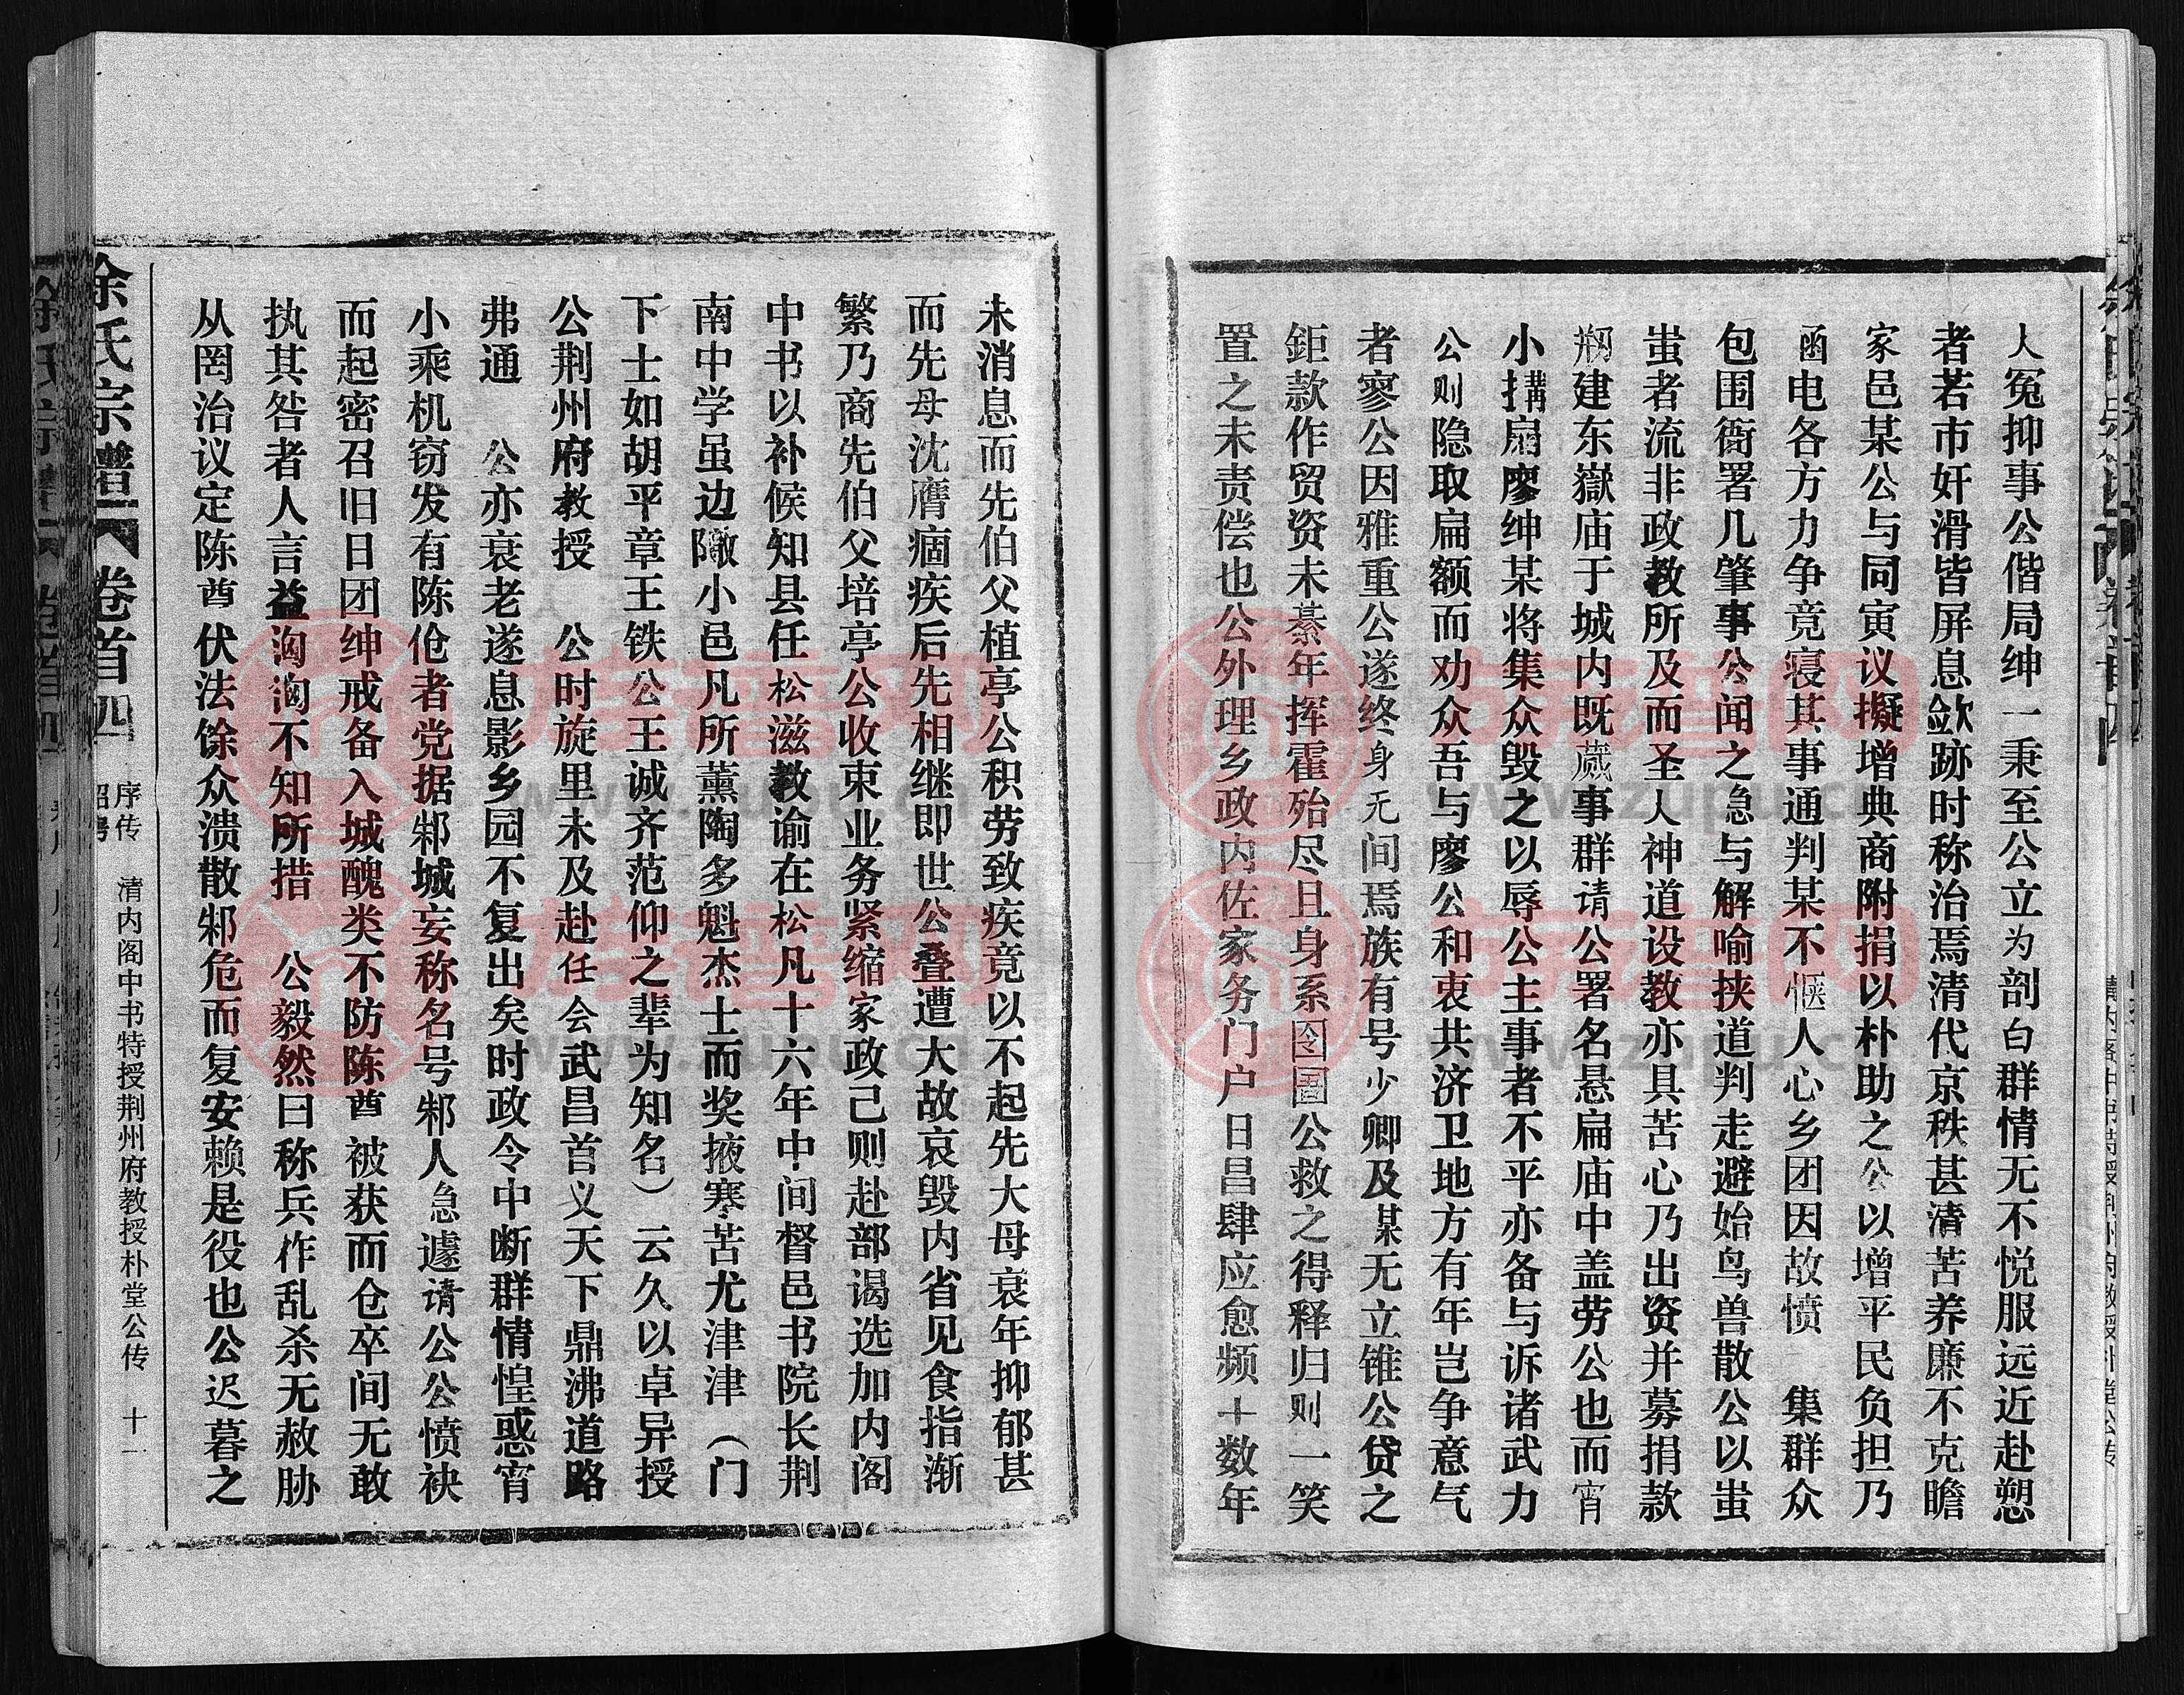 人冤抑事公偕局绅一秉至公立为剖白群情无不悦服远近赴愬
者若市奸滑皆屏息歛跡时称治焉清代京秩甚清苦养廉不克瞻
家邑某公与同寅议擬增典商附捐以朴助之公以增平民负担乃
函电各方力争竟寝其事通判某不惬人心乡团因故愤 集群众
包围衙署几肇事公闻之急与解喻挟道判走避始鸟兽散公以蚩
蚩者流非政教所及而圣人神道设教亦具苦心乃出资并募捐款
剏建东嶽庙于城内既蒇事群请公署名悬扁庙中盖劳公也而宵
小搆扇廖绅某将集众毁之以辱公主事者不平亦备与诉诸武力
公则隐取扁额而劝众吾与廖公和衷共济卫地方有年岂争意气
者寥公因雅重公遂终身无间焉族有号少卿及某无立锥公贷之
鉅款作贸资未綦年挥霍殆尽且身系囹圄公救之得释归则一笑
置之未责偿也公外理乡政内佐家务门户日昌肆应愈频十数年
未消息而先伯父植亭公积劳致疾竟以不起先大母衰年抑郁甚
而先母沈膺痼疾后先相继即世公叠遭大故哀毁内省见食指渐
繁乃商先伯父培亭公收束业务紧缩家政己则赴部谒选加内阁
中书以补候知县任松滋教谕在松凡十六年中间督邑书院长荆
南中学虽边陬小邑凡所薰陶多魁杰士而奖掖寒苦尤津津（门
下士如胡平章王铁公王诚齐范仰之辈为知名）云久以卓异授
公荆州府教授 公时旋里未及赴任会武昌首义天下鼎沸道路
弗通 公亦衰老遂息影乡园不复出矣时政令中断群情惶惑宵
小乘机窃发有陈伧者党据邾城妄称名号邾人急遽请公公愤袂
而起密召旧日团绅戒备入城醜类不防陈酋被获而仓卒间无敢
执其咎者人言益汹汹不知所措 公毅然曰称兵作乱杀无赦胁
从罔治议定陈酋伏法馀众溃散邾危而复安赖是役也公迟暮之
徐氏宗譜 卷首四 序传 清内阁中书特授荆州府教授朴堂公传 十一